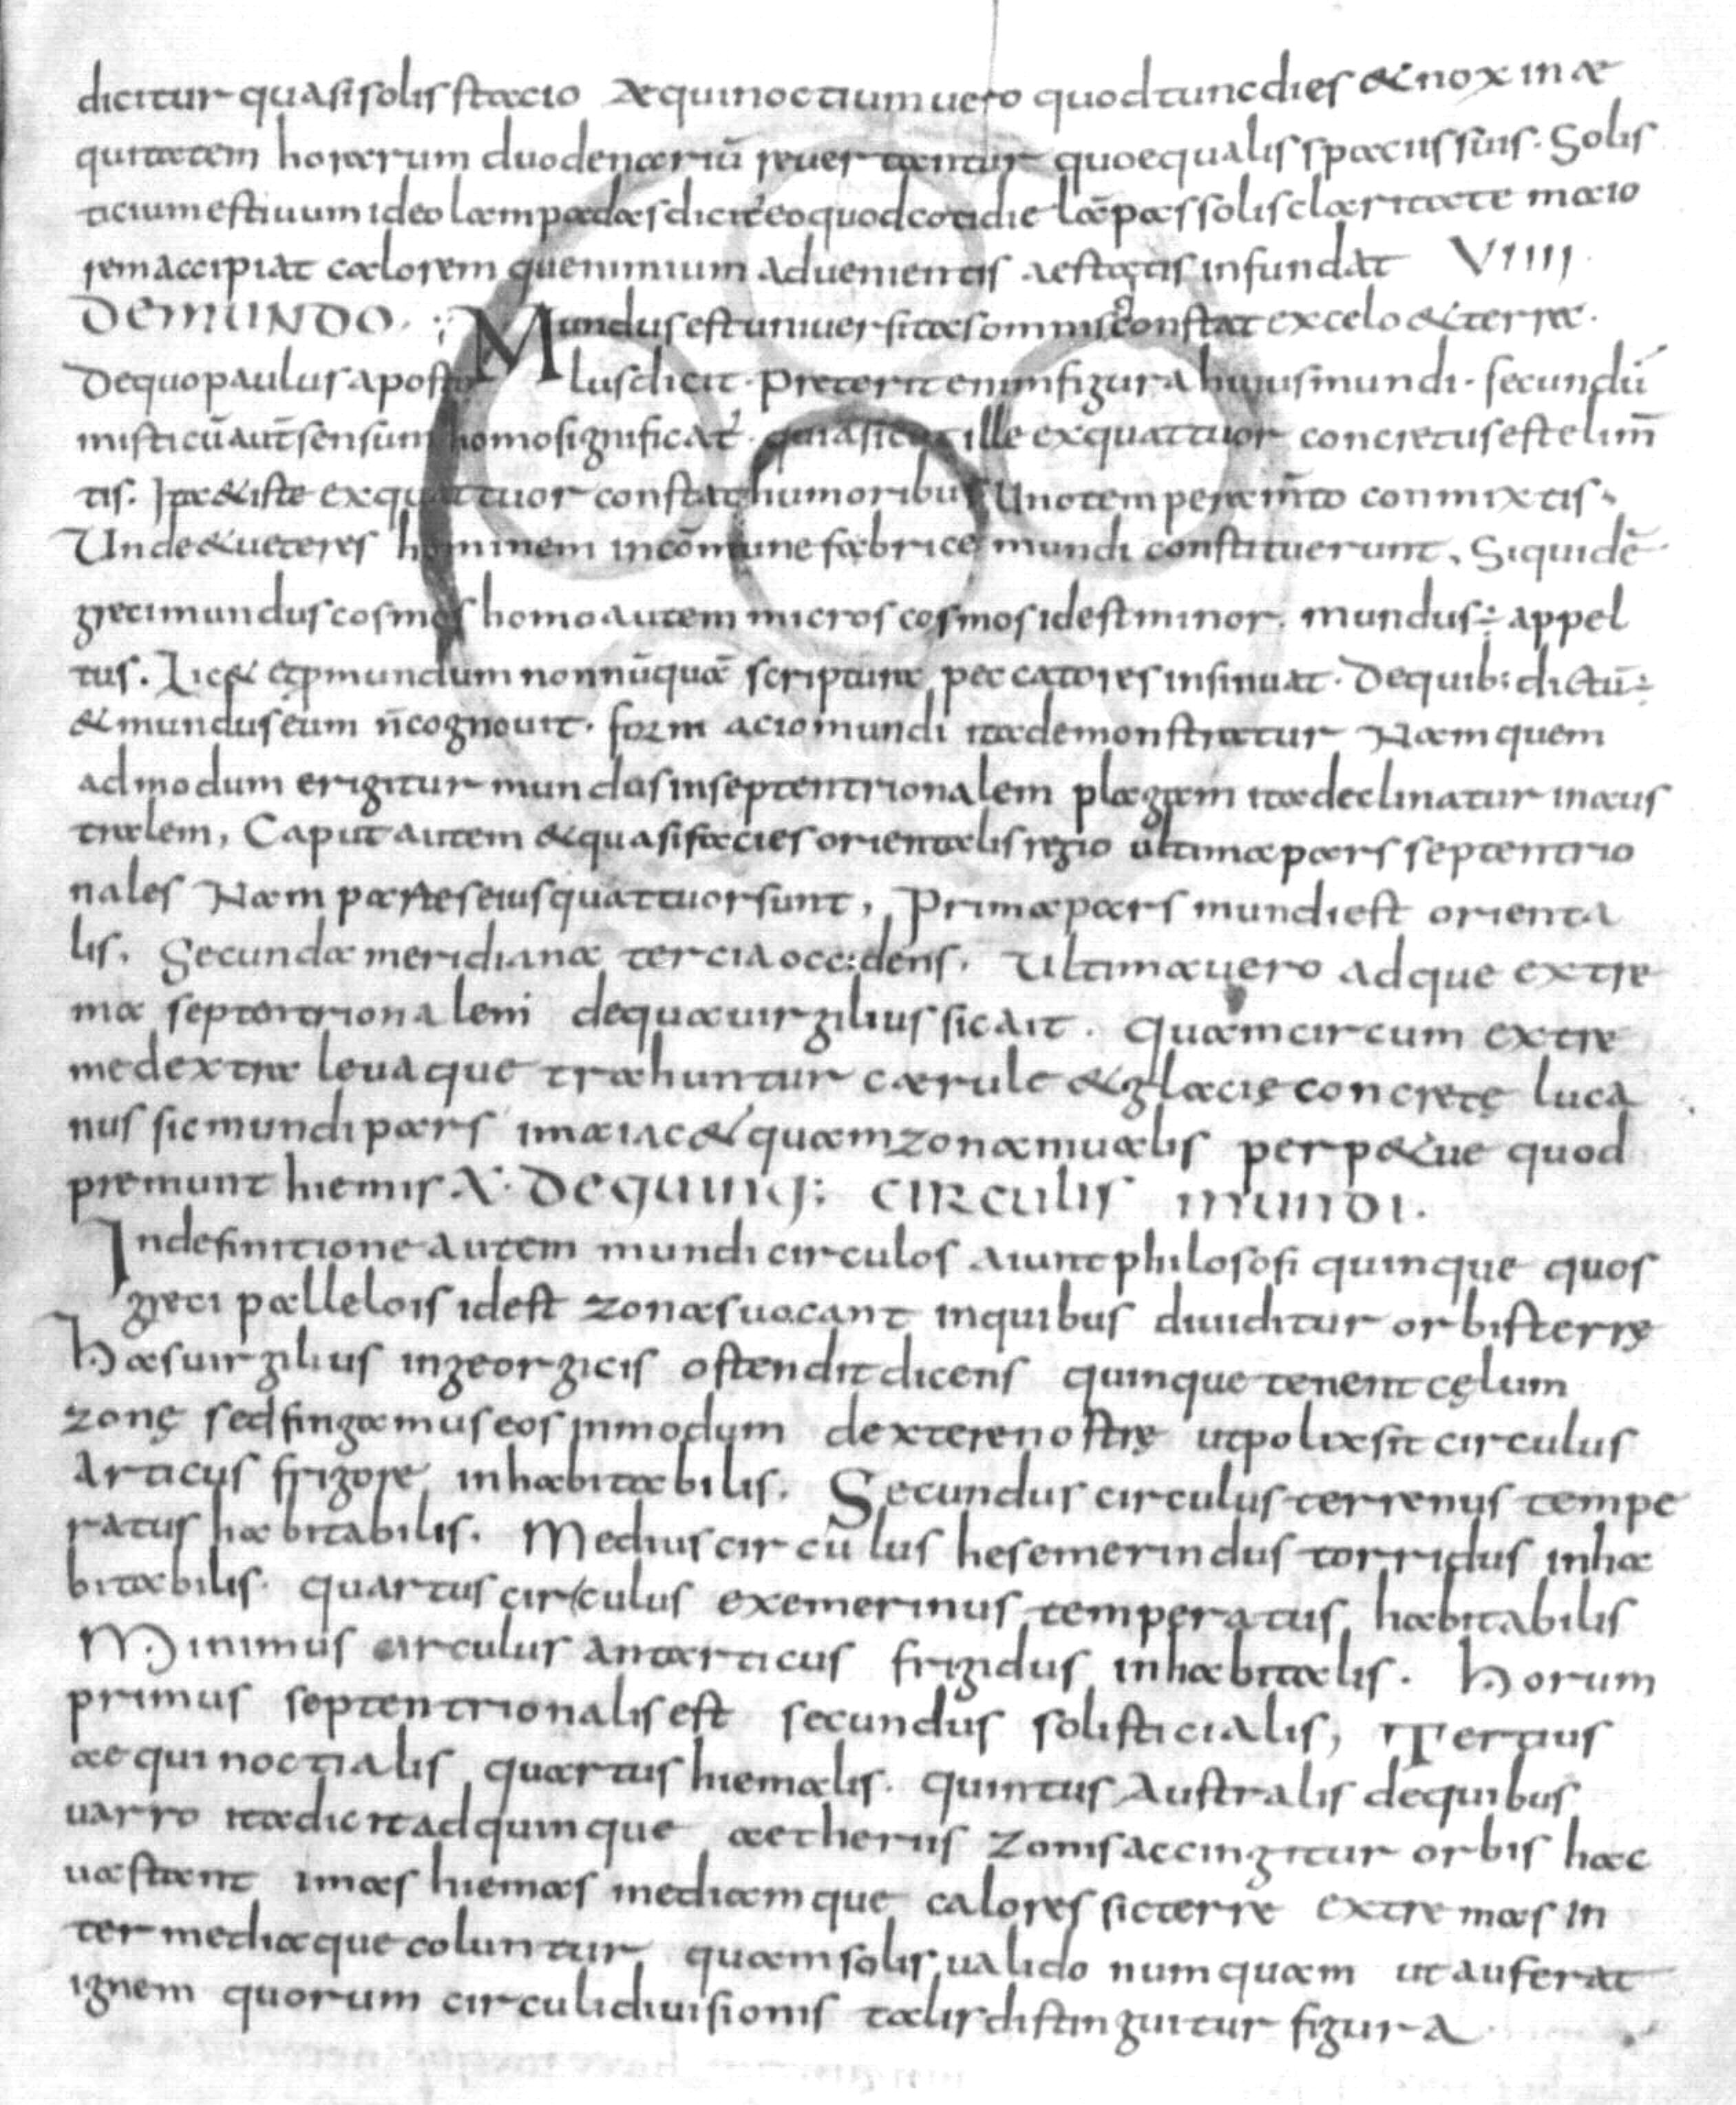 dicitur quasi solis stacio Aequinoctium uero quod tunc dies & nox in ae
quitatem horarum duodenariū reuertantur quo equalis spaciis suis. Solis
ticium estiuum ideo lampadas dicit' eo quod cotidie lāpas solis claritate maio
rem accipiat calorem que nimium aduenientis aestatis infundat VIIII.
DE MUNDO. Mundus est uniuersitas omnis q constat ex celo & terra.
De quo paulus aposto lus dicit. Preterit enim figura huius mundi. secundū
misticū aūt sensum homo significat'. quia sicut ille ex quattuor concretus est elim̄
tis. Ita & iste ex quattuor constat humoribus Uno temperam̄to conmixtis.
Unde & ueteres hominem in cōmune fabrice mundi constituerunt, Siquidē
greci mundus cosmos homo autem micros cosmos id est minor. mundus ÷ appel
tus. Lic& & p mundum nonnūquā scriptura peccatores insinuat. De quib: dictū÷
& mundus eum n̄ cognouit. formacio mundi ita demonstratur Nam quem
admodum erigitur mundus in septentrionalem plagam ita declinatur in aus
tralem, Caput autem & quasi facies orientalis regio ultima pars septentrio
nales Nam partes eius quattuor sunt, Prima pars mundi est orienta
lis, Secunda meridiana tercia occidens. Ultima uero adque extre
ma septentrionalem de qua uirgilius sic ait. quam circum extre
me dextra leuaque trahuntur caerule & glacię concretę luca
nus sic mundi pars ima iac& quam zona niualis perp&ue quod
premunt hiemis X. DE QUINQ: CIRCULIS MUNDI.
In definitione autem mundi circulos aiunt philosofi quinque quos
greci pallelois id est zonas uocant in quibus diuiditur orbis terrę
Has uirgilius in georgicis ostendit dicens quinque tenent cęlum
zonę sed fingamus eos in modum dextere nostrę ut polix sit circulus
Articus frigore inhabitabilis. Secundus circulus terrenus tempe
ratus habitabilis. Medius circulus hesemerindus torridus inha
bitabilis. quartus circulus exemerinus temperatus habitabilis
Minimus circulus antarticus frigidus inhabitalis. Horum
primus septentrionalis est secundus solisticialis, Tertius
aequinoctialis quartus hiemalis. quintus Australis de quibus
uarro ita dicit ad quinque aetheriis zonis accingitur orbis hac
uastant imas hiemas mediamque calores sic terre extremas in
ter mediaque coluntur quam solis ualido numquam ut auferat
ignem quorum circuli diuisionis talis distinguitur figura